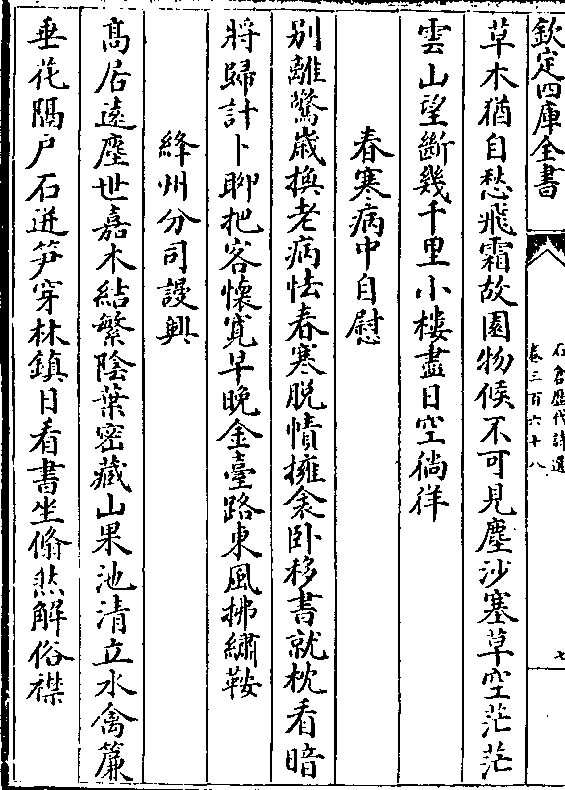 欽定四庫全書
石倉歷代詩選
卷三百六十八
七
草木猶自愁飛霜故園物候不可見塵沙塞草空茫茫
雲山望斷幾千里小樓盡日空徜徉
春寒病中自慰
別離驚歲換老病怯春寒脫幘擁衾卧移書就枕看暗
將歸計卜聊把客懷寛早晚金臺路東風拂繡鞍
絳州分司謾興
髙居逺塵世嘉木結繁陰葉宻藏山果池清立水禽簾
垂花隔戸石迸笋穿林鎮日看書坐翛然解俗襟